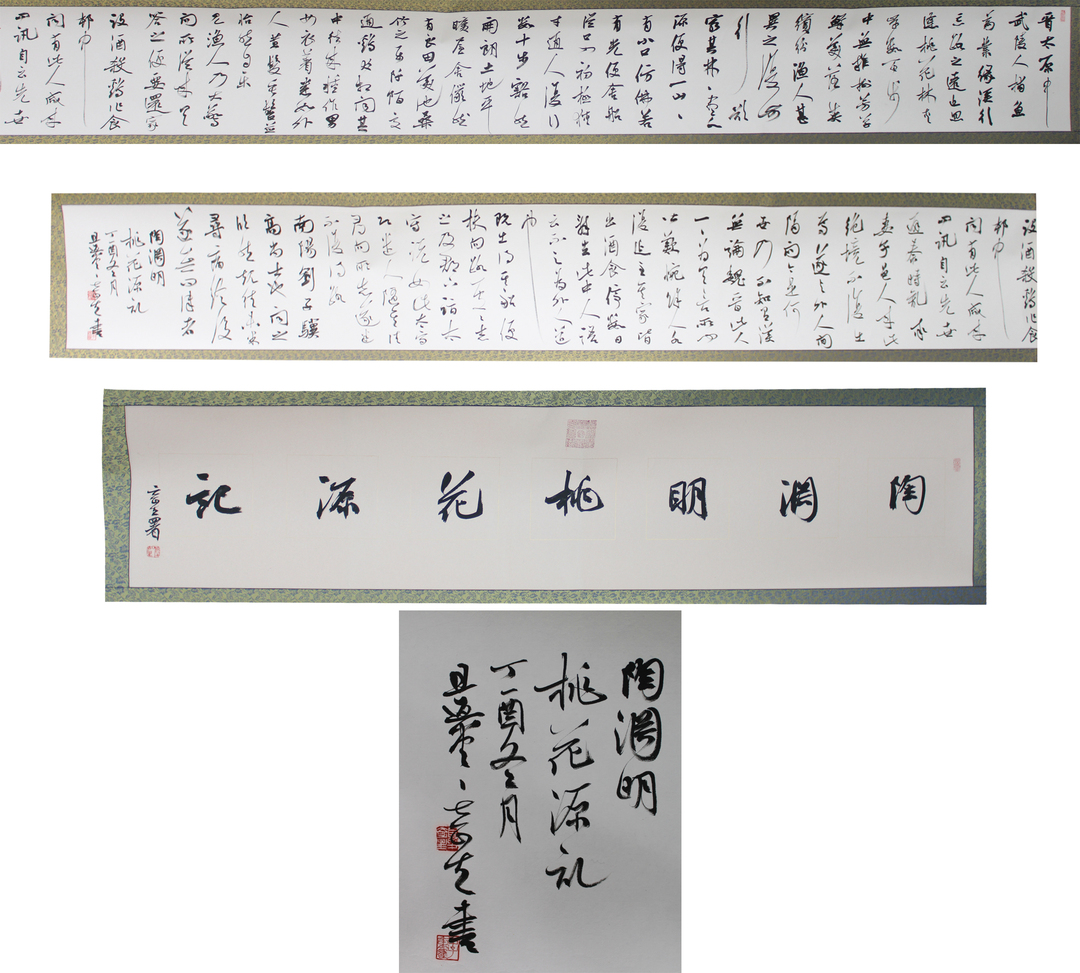 晉太原中
武陵人捕魚
為業緣溪行
忘路之遠近忽
逢桃花林夾
岸數百步
中無雜樹芳草
鮮美落英
繽紛漁人甚
異之復前
行欲
窮其林林盡水
源便得一山山
有小口仿佛若
有光便舍船
從口入初極狹
才通人復行
數十步豁然
開朗土地平
曠屋舍儼然
有良田美池桑
竹之屬阡陌交
通雞犬相聞其
中往來種作男
女衣著悉如外
人黃髮垂髫並
怡然自樂
見漁人乃大驚
問所從來具
答之便要還家
設酒殺雞作食
村中
聞有此人咸來
問訊自云先世
設酒殺雞作食
村中
聞有此人咸來
問訊自云先世
避秦時亂率
妻子邑人來此
絕境不復出
焉遂與外人間
隔問今是何
世乃不知有漢
無論魏晉此人
一一為具言所聞
皆歎惋餘人各
復延至其家皆
出酒食停數日
辭去此中人語
云不足為外人道
也
既出得其船便
扶向路處處志
之及郡下詣太
守說如此太守
即遣人隨其往
尋向所志遂迷
不復得路
南陽劉子驥
高尚士也聞之
欣然規往未果
尋病終後
遂無問津者
陶淵明
桃花源記
丁酉冬月
書
陶淵明桃花源記
署
陶淵明
桃花源記
丁酉冬月
書